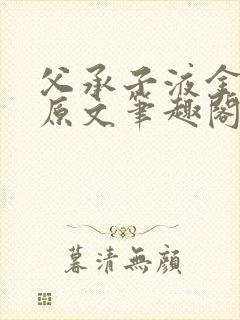 父承子液全
原文笔趣阁
暮清無顔